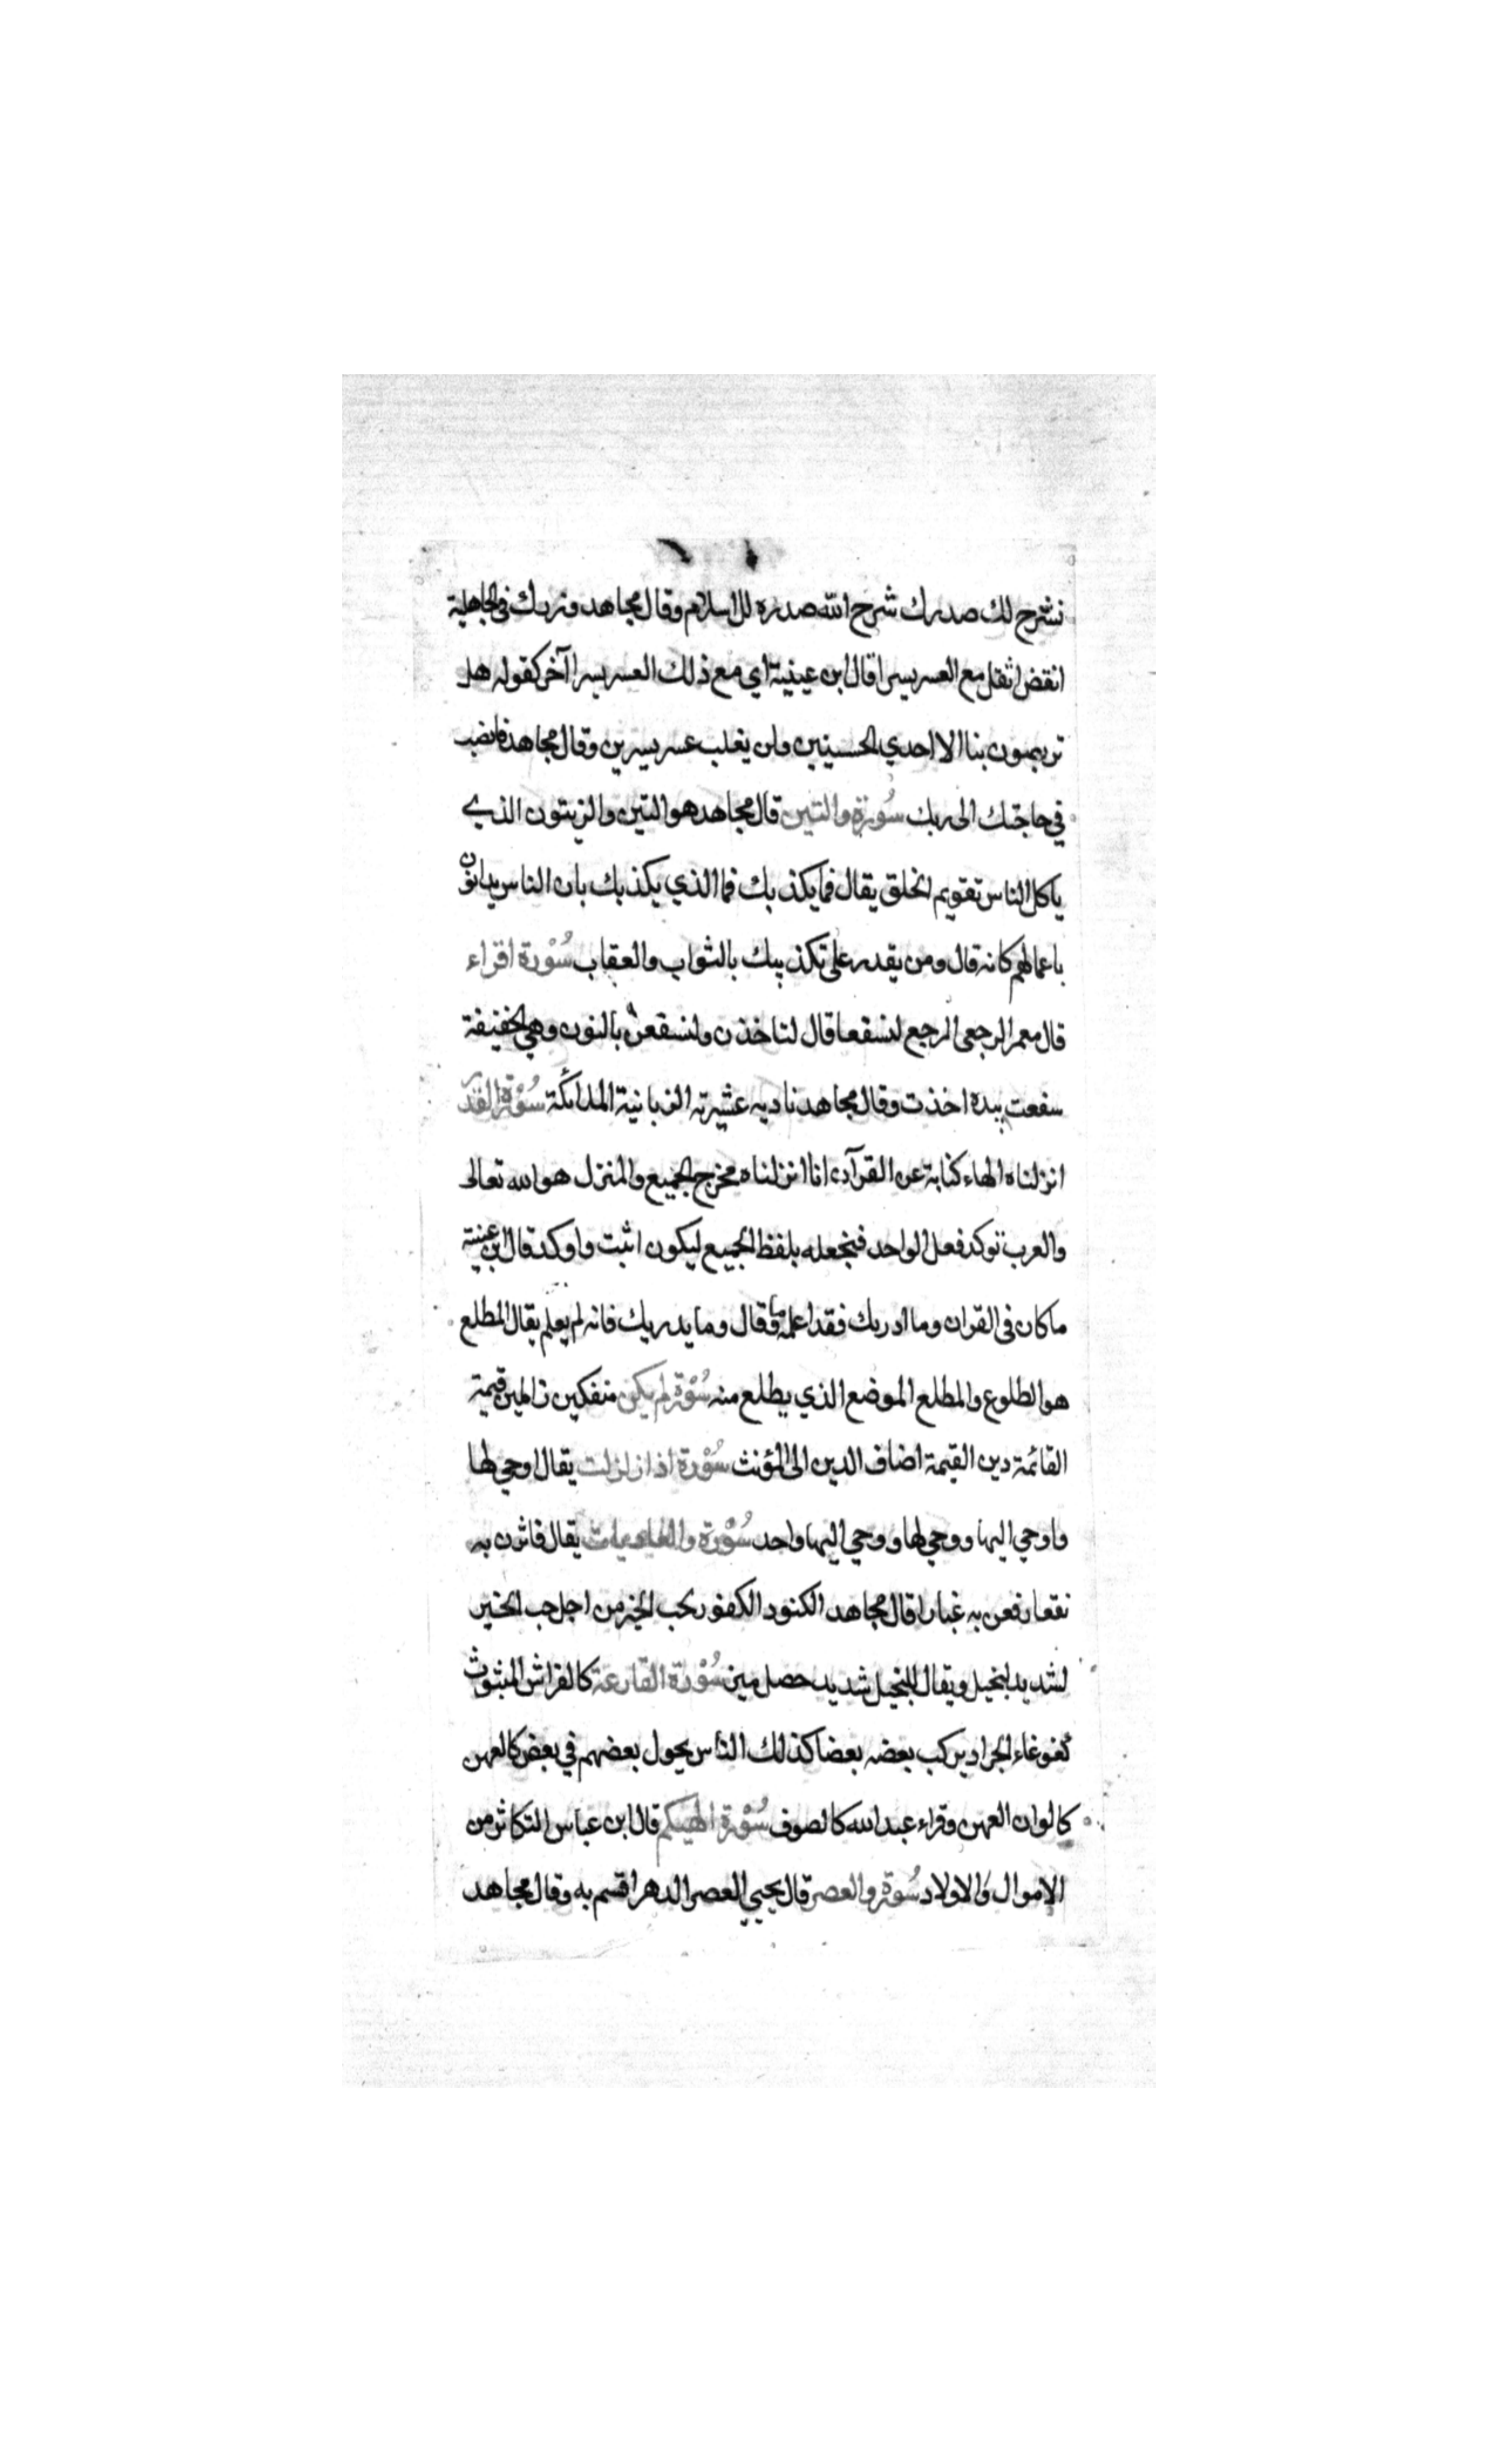 نشرح لك صدرك شرح الله صدره للاسلام وقال مجاهد وزرك في الجاهلية
انقض اثقل مع العسر يسرا قال ابن عيينة اي مع ذلك العسر يسرا آخر كقوله هل
تربصون بنا الا احدي الحسنيين ولن يغلب عسر يسرين وقال مجاهد فانصب
في حاجتك الى ربك سُوْرة والتين قال مجاهد هو التين والزيتون الذي
ياكل الناس تقويم الخلق يقال فما يكذبك فما الذي يكذبك بان الناس يدانون
باعمالهم كانه قال ومن يقدر على تكذيبك بالثواب والعقاب سُوْرة اقراء
قال معمر الرجعى المرجع لنسفعا قال لناخذن ولنسفعن بالنون وهي الخفيفة
سفعت بيده اخذت وقال مجاهد ناديه عشيرته الزبانية الملائكة سُوْرة القدر
انزلناه الهاء كناية عن القرآن انا انزلناه مخرج الجميع والمنزل هو الله تعالى
والعرب توكد فعل الواحد فتجعله بلفظ الجميع ليكون اثبت واوكد قال ابن عيينة
ما كان في القران وما ادريك فقد اعلمه وما قال وما يدريك فانه لم يعلم يقال المطلع
هو الطلوع والمطلع الموضع الذي يطلع منه سُوْرة لم يكن منفكين زائلين قيمة
القائمة دين القيمة اضاف الدين الى المؤنث سُوْرة اذا زلزلت يقال اوحي لها
واوحي اليها ووحي لها ووحي اليها واحد سُوْرة والعاديات يقال فاثرن به
نقعا رفعن به غبارا قال مجاهد الكنود الكفور لحب الخير من اجل حب الخير
لشديد لبخيل ويقال للبخيل شديد حصل ميز سُوْرة القارعة كالفراش المبثوث
كغوغاء الجراد يركب بعضه بعضا كذلك الناس يجول بعضهم في بعض كالعهن
كالوان العهن وقراء عبد الله كالصوف سُوْرة الهيكم قال ابن عباس التكاثر من
الاموال والاولاد سُوْرة والعصر قال يحيي العصر الدهر اقسم به وقال مجاهد